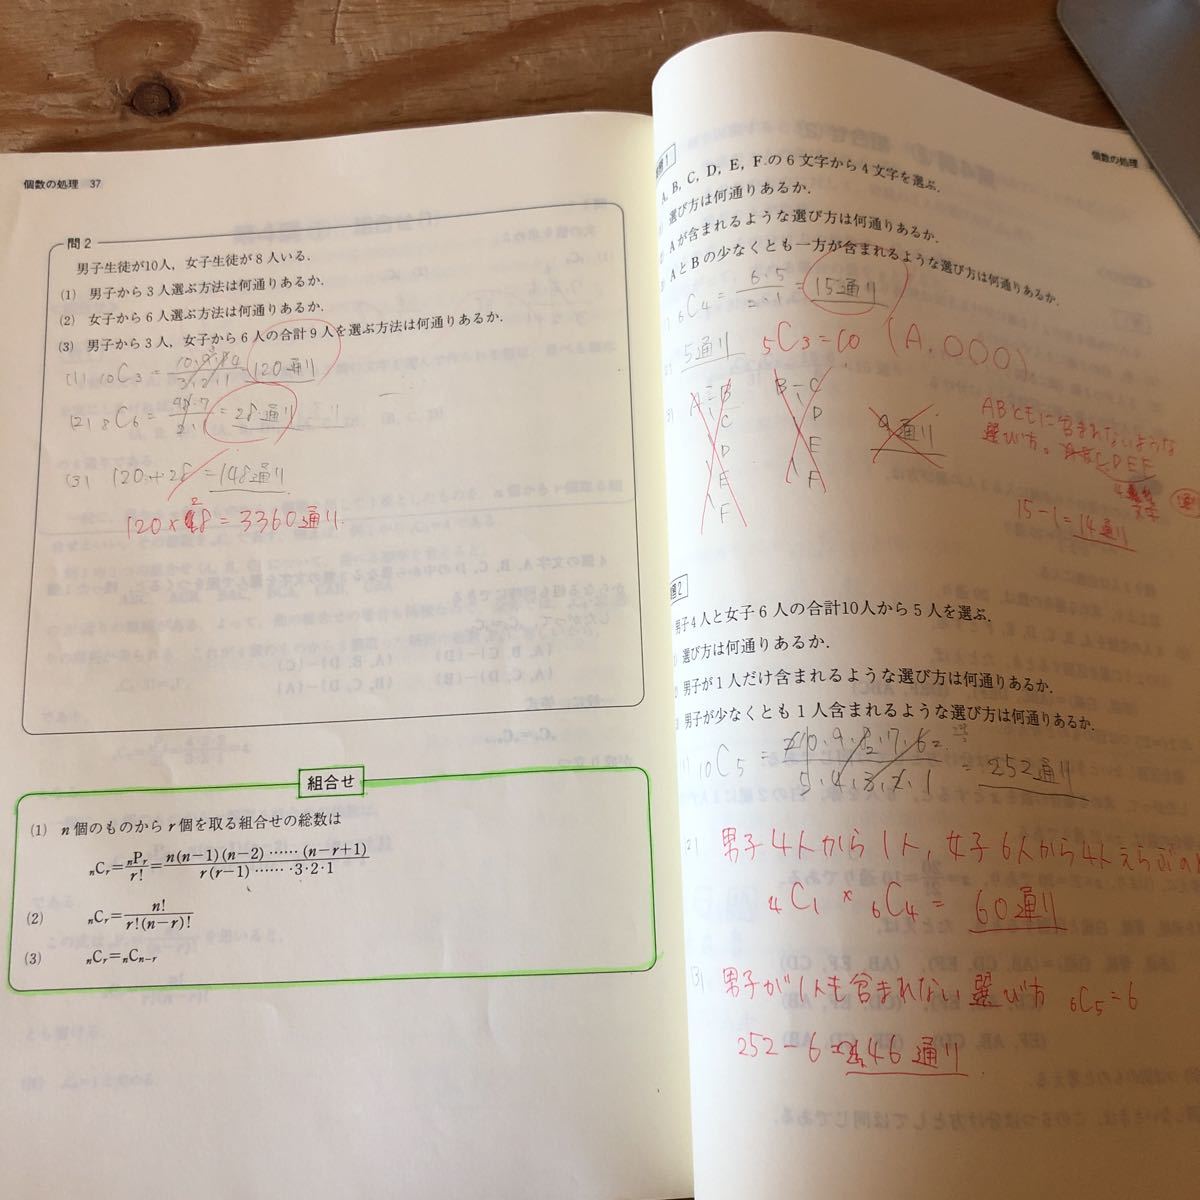 個数の処理 37
問2
男子生徒が10人，女子生徒が8人いる．
(1) 男子から3人選ぶ方法は何通りあるか．
(2) 女子から6人選ぶ方法は何通りあるか．
(3) 男子から3人，女子から6人の合計9人を選ぶ方法は何通りあるか．
(1) 10C3 = 10・9・8/3・2・1 = 120通り
(2) 8C6 = 8・7/2・1 = 28通り
(3) 120+28 = 148通り
120×28 = 3360通り
組合せ
(1) n個のものからr個を取る組合せの総数は
nCr = nPr/r! = n(n−1)(n−2)……(n−r+1)/r(r−1)……・3・2・1
(2) nCr = n!/r!(n−r)!
(3) nCr = nCn−r
個数の処理
1
A, B, C, D, E, Fの6文字から4文字を選ぶ．
選び方は何通りあるか．
Aが含まれるような選び方は何通りあるか．
AとBの少なくとも一方が含まれるような選び方は何通りあるか．
6C4 = 6・5/2・1 = 15通り
5通り 5C3 = 10 (A,○○○)
A−B B−C 9通り
C D
D E
E F
F
ABともに含まれないような
選び方。CDEF
15−1=14通り
題2
男子4人と女子6人の合計10人から5人を選ぶ．
選び方は何通りあるか．
男子が1人だけ含まれるような選び方は何通りあるか．
男子が少なくとも1人含まれるような選び方は何通りあるか．
10C5 = 10・9・8・7・6/5・4・3・2・1 = 252通り
男子4人から1人，女子6人から4人えらぶの
4C1 × 6C4 = 60通り
男子が1人も含まれない選び方 6C5=6
252−6=246通り